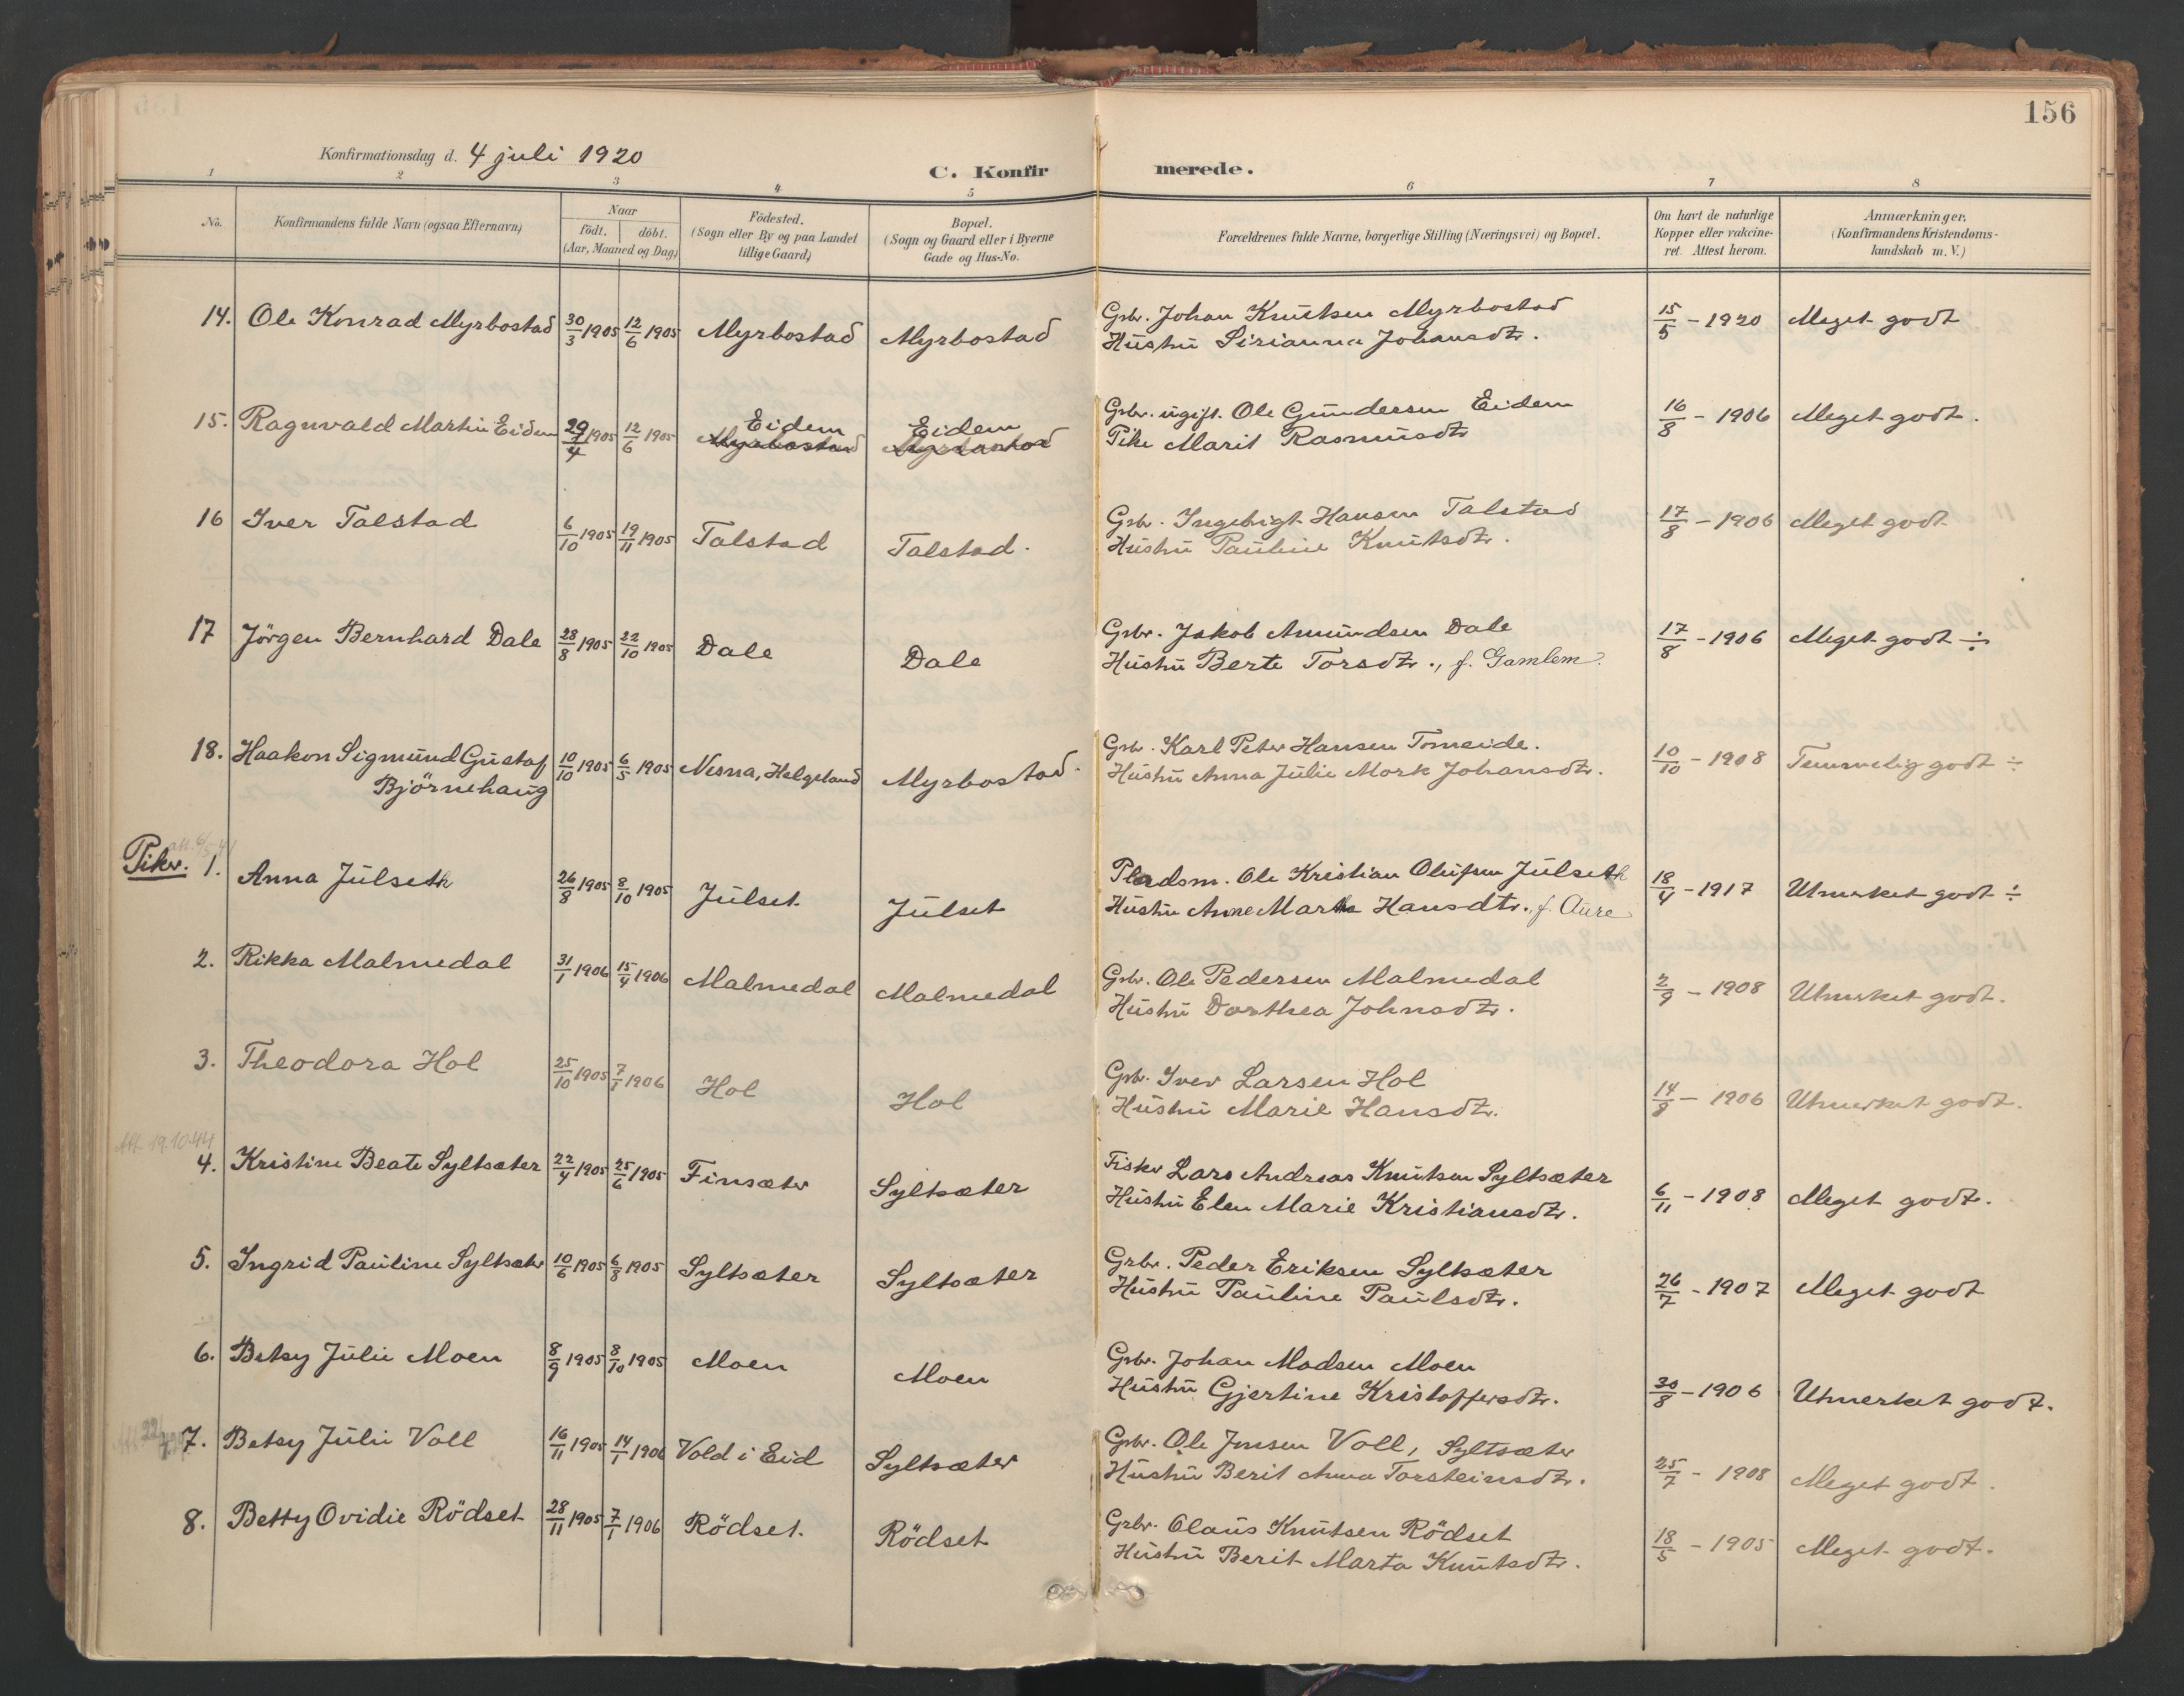 156
Konfirmationsdag d. 4 juli 1920
C. Konfirmerede.
1 2 3 4 5 6 7 8
No. Konfirmandens fulde Navn (ogsaa Efternavn) Naar födt. döbt. (Aar, Maaned og Dag) Födested. (Sogn eller By og paa Landet tillige Gaard) Bopæl. (Sogn og Gaard eller i Byerne Gade og Hus-No. Forældrenes fulde Navne, borgerlige Stilling (Næringsvei) og Bopæl. Om havt de naturlige Kopper eller vakcineret. Attest herom. Anmærkninger. (Konfirmandens Kristendomskundskab m. V.)
14. Ole Konrad Myrbostad 30/3 1905 12/6 1905 Myrbostad Myrbostad Grbr. Johan Knutsen Myrbostad 15/5 - 1920 Meget godt
Hustru Sirianna Johansdtr.
15. Ragnvald Martin Eidem 29/4 1905 12/6 1905 Eidem Eidem Grbr. ugift. Ole Gundersen Eidem 16/8 - 1906 Meget godt.
Myrbostad Myrbostad Pike Marit Rasmusdtr
16 Iver Talstad 6/10 1905 19/11 1905 Talstad Talstad. Grbr. Ingebrigt Hansen Talstad 17/8 - 1906 Meget godt
Hustru Pauline Knutsdtr.
17 Jörgen Bernhard Dale 28/8 1905 22/10 1905 Dale Dale Grbr. Jakob Amundsen Dale 17/8 - 1906 Meget godt ÷
Hustru Berte Torsdtr., f. Gamlem.
18. Haakon Sigmund Gustaf 10/10 1905 6/5 1905 Nesna, Helgeland Myrbostad. Grbr. Karl Peter Hansen Tomeide. 10/10 - 1908 Temmelig godt ÷
Björnehaug Hustru Anna Julie Mork Johansdtr.
Piker. 1. Anna Julseth 26/8 1905 8/10 1905 Julset Julset Pladsm. Ole Kristian Olufsen Julseth 18/4 - 1917 Utmerket godt ÷
Hustru Anne Marta Hansdtr., f. Aure
2. Rikka Malmedal 31/1 1906 15/4 1906 Malmedal Malmedal Grbr. Ole Pedersen Malmedal 2/9 - 1908 Utmerket godt.
Hustru Dorthea Johnsdtr.
3. Theodora Hol 25/10 1905 7/1 1906 Hol Hol Grbr. Iver Larsen Hol 14/8 - 1906 Utmerket godt.
Hustru Marie Hansdtr.
Att. 19.10.44
4. Kristine Beate Syltsæter 22/4 1905 25/6 1905 Finsæter Syltsæter Fisker Lars Andreas Knutsen Syltsæter 6/11 - 1908 Meget godt.
Hustru Elen Marie Kristiansdtr.
5. Ingrid Pauline Syltsæter 10/6 1905 6/8 1905 Syltsæter Syltsæter Grbr. Peder Eriksen Syltsæter 26/7 - 1907 Meget godt
Hustru Pauline Paulsdtr.
6. Betsy Julie Moen 8/9 1905 8/10 1905 Moen Moen Grbr. Johan Madsen Moen 30/8 - 1906 Utmerket godt.
Hustru Gjertine Kristoffersdtr.
7. Betsy Julie Voll 16/11 1905 14/1 1906 Vold i Eid Syltsæter Grbr. Ole Jensen Voll, Syltsæter 25/7 - 1908 Meget godt.
Hustru Berit Anna Torsteinsdtr.
8. Betty Ovidie Rödset 28/11 1905 7/1 1906 Rödset. Rödset Grbr. Olaus Knutsen Rödset 18/5 - 1905 Meget godt.
Hustru Berit Marta Knutsdtr.